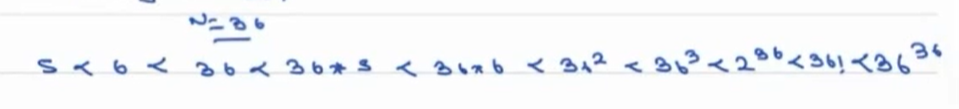 N=36
5 < 6 < 36 < 36*5 < 36*6 < 36² < 36³ < 2³⁶ < 36! < 36³⁶